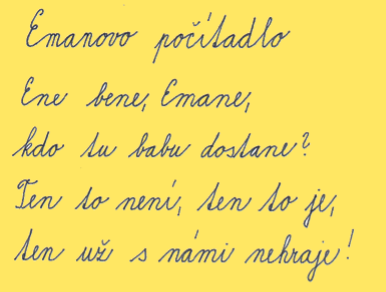 Emanovo počítadlo
Ene bene, Emane,
kdo tu babu dostane?
Ten to není, ten to je,
ten už s námi nehraje!